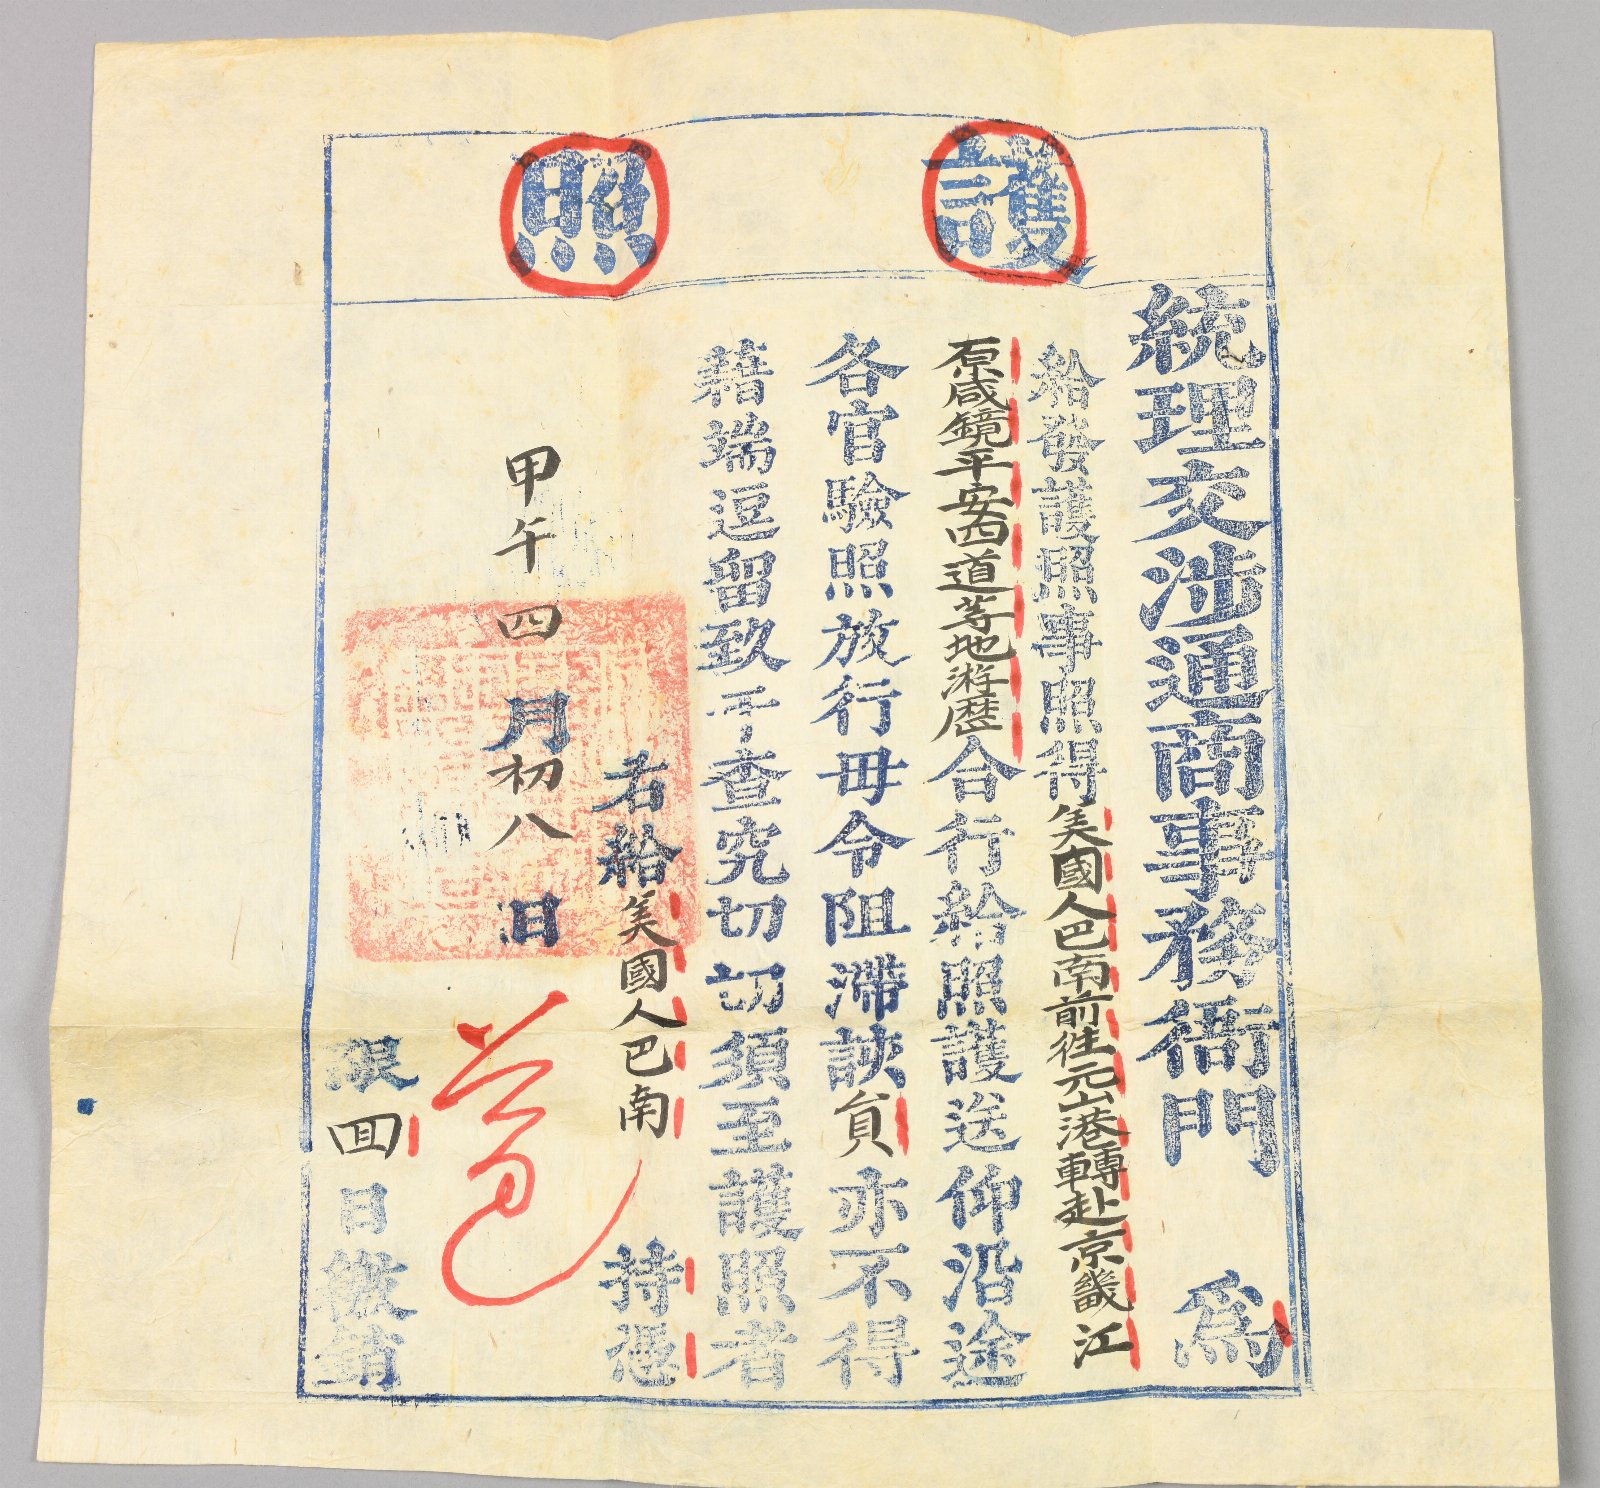 護照
統理交涉通商事務衙門 爲
給發護照事照得美國人巴南前往元山港轉赴京畿江
原咸鏡平安四道等地游歷合行給照護送仰沿途
各官驗照放行毋令阻滯該員亦不得
藉端逗留致干查究切切須至護照者
右給美國人巴南 持憑
甲午四月初八日
限回日繳銷